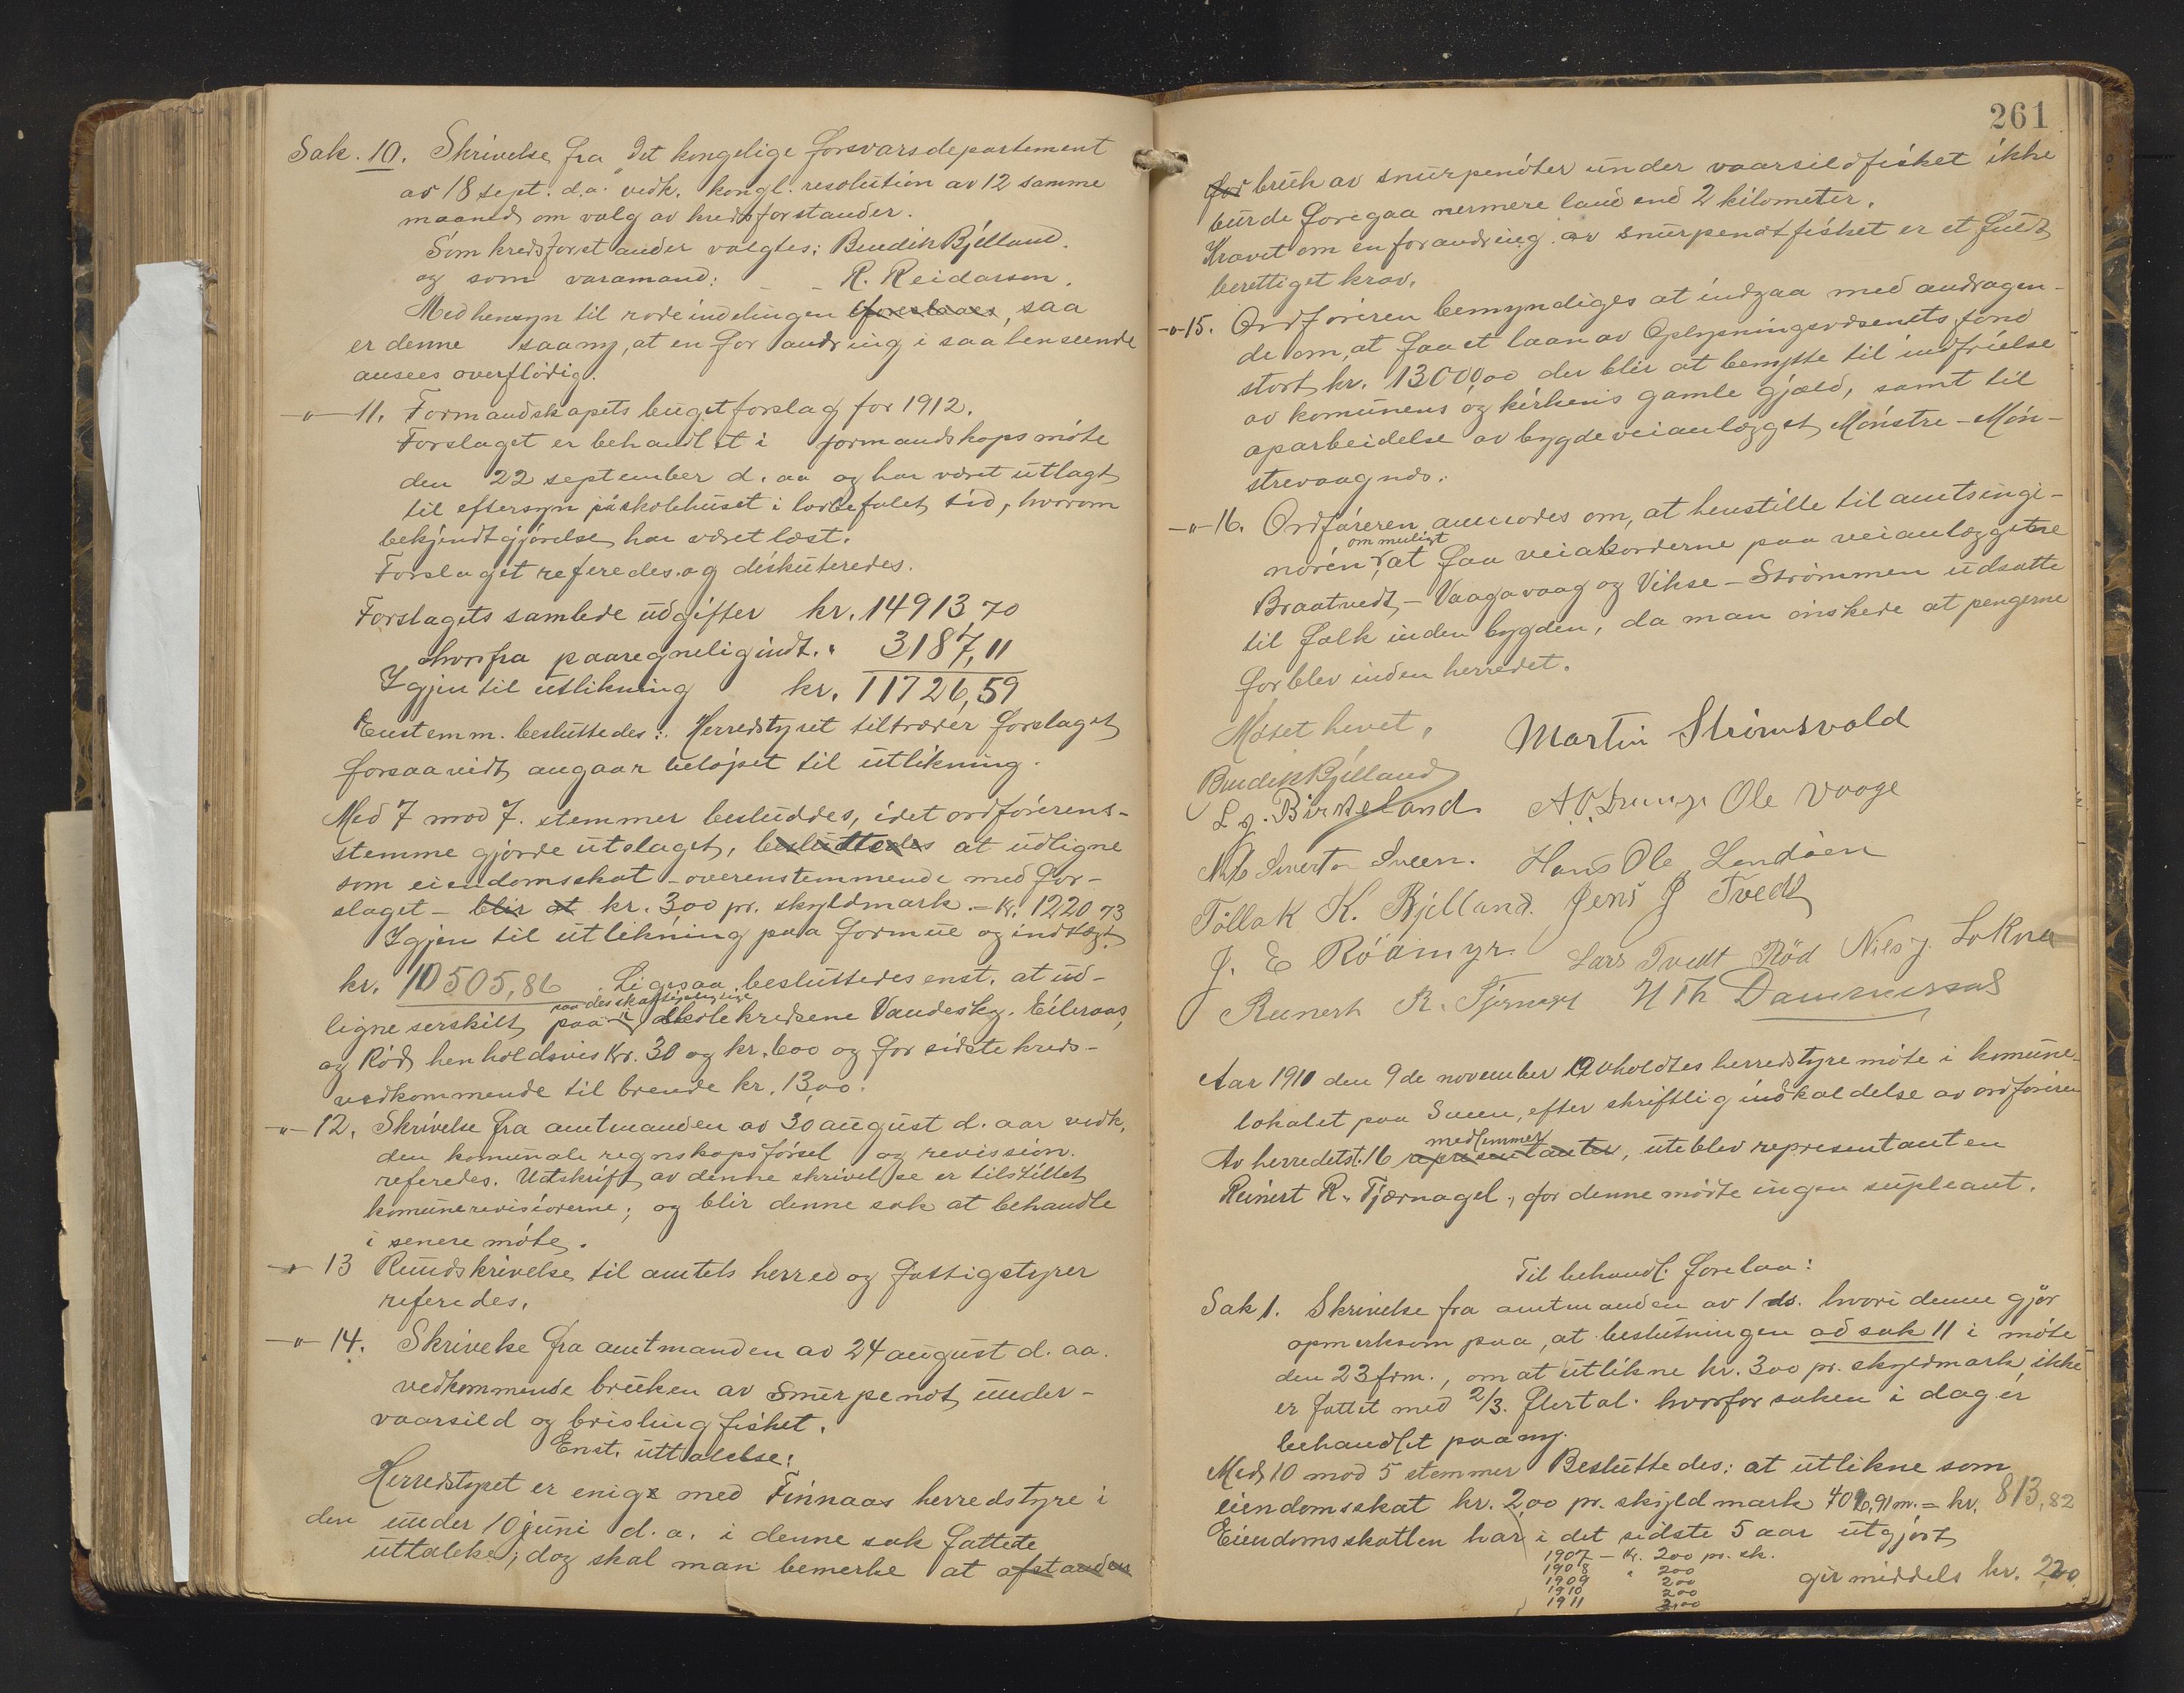 Sak. 10. Skrivelse fra "Det kongelige forsvarsdepartement
av 18 sept. d.a." vedk. kongl. resolution av 12 samme
maaned om valg av kredsforstander.
Som kredsforstander valgtes: Bendik Bjelland.
og som varamand: - - R. Reidarson.
Med hensyn til rodeindelingen foreslaaes, saa
er denne saa ny, at en forandring i saa henseende
ansees overflödig.
-"- 11. Formandskapets bugetforslag for 1912.
Forslaget er behandlet i formandskapsmöte
den 22 september d. aa og har været utlagt
til eftersyn på skolehuset i lovbefalet tid, hvorom
bekjendtgjörelse har været læst.
Forslaget referedes og diskuteredes.
Forslagets samlede udgifter kr. 14913,70
hvorfra paaregnelig indt. " 3187,11
Igjen til utlikning kr. 11726,59
Enstemm. besluttedes: Herredstyret tiltræder forslaget
forsaavidt angaar belöpet til utlikning.
Med 7 mod 7. stemmer besluddes, idet ordförerens-
stemme gjorde utslaget, besluttedes at udligne
som eiendomsskat - overenstemmende med for-
slaget - blir at kr. 3,00 pr. skyldmark. - Kr. 1220,73
Igjen til utlikning paa formue og indtægt
kr. 10505,86. Ligesaa besluttedes enst. at ud-
ligne serskilt paa skolekredsene Vandeskg. Eileraas,
og Röd henholdsvis Kr. 30 og kr. 600 og for sidste kreds-
vedkommende til brende kr. 13,00.
-"- 12. Skrivelse fra amtmanden av 30 august d. aar vedk.
den komunale regnskapsförsel og revission.
referedes. Udskrift av denne skrivelse er tilstillet
komunerevisorerne; og blir denne sak at behandle
i senere möte.
-"- 13 Rundskrivelse til amtets herred og fattigstyrer
referedes.
-"- 14. Skrivelse fra amtmanden av 24 august d. aa.
vedkommende bruken av Snurpenot under-
vaarsild og brislingfisket.
Enst. uttalelse:
Herredstyret er enig med Finnaas herredstyre i
den under 10 juni d. a. i denne sak fattete
uttalelse; dog skal man bemerke at afstanden
261
for bruk av snurpenöter under vaarsildfisket ikke
burde foregaa nermere land end 2 kilometer.
Kravet om en forandring av snurpenotfisket er et fuldt
berettiget krav.
-"- 15. Ordföreren bemyndiges at indgaa med andragen-
de om, at faa et laan av Oplysningsvæsenets fond
stort kr. 13000,00 der blir at benytte til indfrielse
av komunens og kirkens gamle gjæld, samt til
oparbeidelse av bygdeveianlægget Mönstre - Mön-
strevaagnes.
-"- 16. Ordföreren anmodes om, at henstille til amtsingi-
om muligt
nören, at faa veiakorderne paa veianlæggene
Braatvedt - Vaagavaag og Vikse - Strömmen udsatte
til folk inden bygden, da man önskede at pengerne
forblev inden herredet.
Mötet hevet.
Martin Strömsvold
Bendik Bjelland
L J. Birkeland Ole Vaage
Sveen. Hans Ole Lendöen
Tollak K. Bjelland. Jens J Tvedt
J. E Röämyr. Lars Tvedt Röd Nils J. Lokna
Reinert R. Tjernagel H Th Dammersnes
Aar 1911 den 9de november avholdtes herredstyremöte i komune-
lokalet paa Sveen, efter skriftlig indkaldelse av ordföreren
medlemmer
Av herredets 16 representanter, uteblev representanten
Reinert R. Tjærnagel, for denne mödte ingen supleant.
Til behandl. forelaa:
Sak 1. Skrivelse fra amtmanden av 1 ds. hvori denne gjör
opmerksom paa, at beslutningen ad sak 11 i möte
den 23 frm., om at utlikne kr. 300 pr. skyldmark, ikke
er fattet med 2/3. flertal. hvorfor saken i dag er
behandlet paa ny.
Med 10 mod 5 stemmer Besluttedes: at utlikne som
eiendomsskat kr. 2,00 pr. skyldmark 406,91 m. = kr. 813,82
Eiendomsskatten har i det sidste 5 aar utgjort
1907 - Kr. 200 pr. sk.
1908 " 200
1909 200
1910 200
1911 3,00
gir middels kr. 2,20.